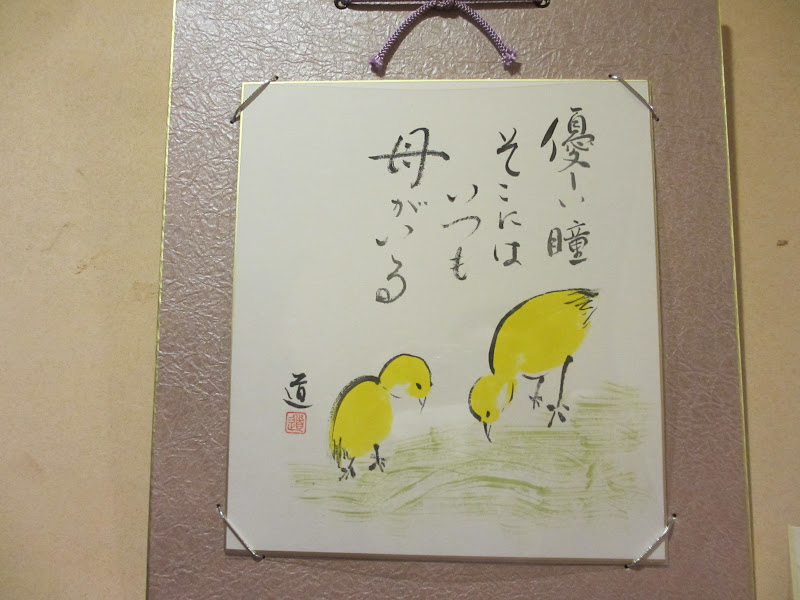 優しい瞳
そこには
いつも
母がいる
道
道